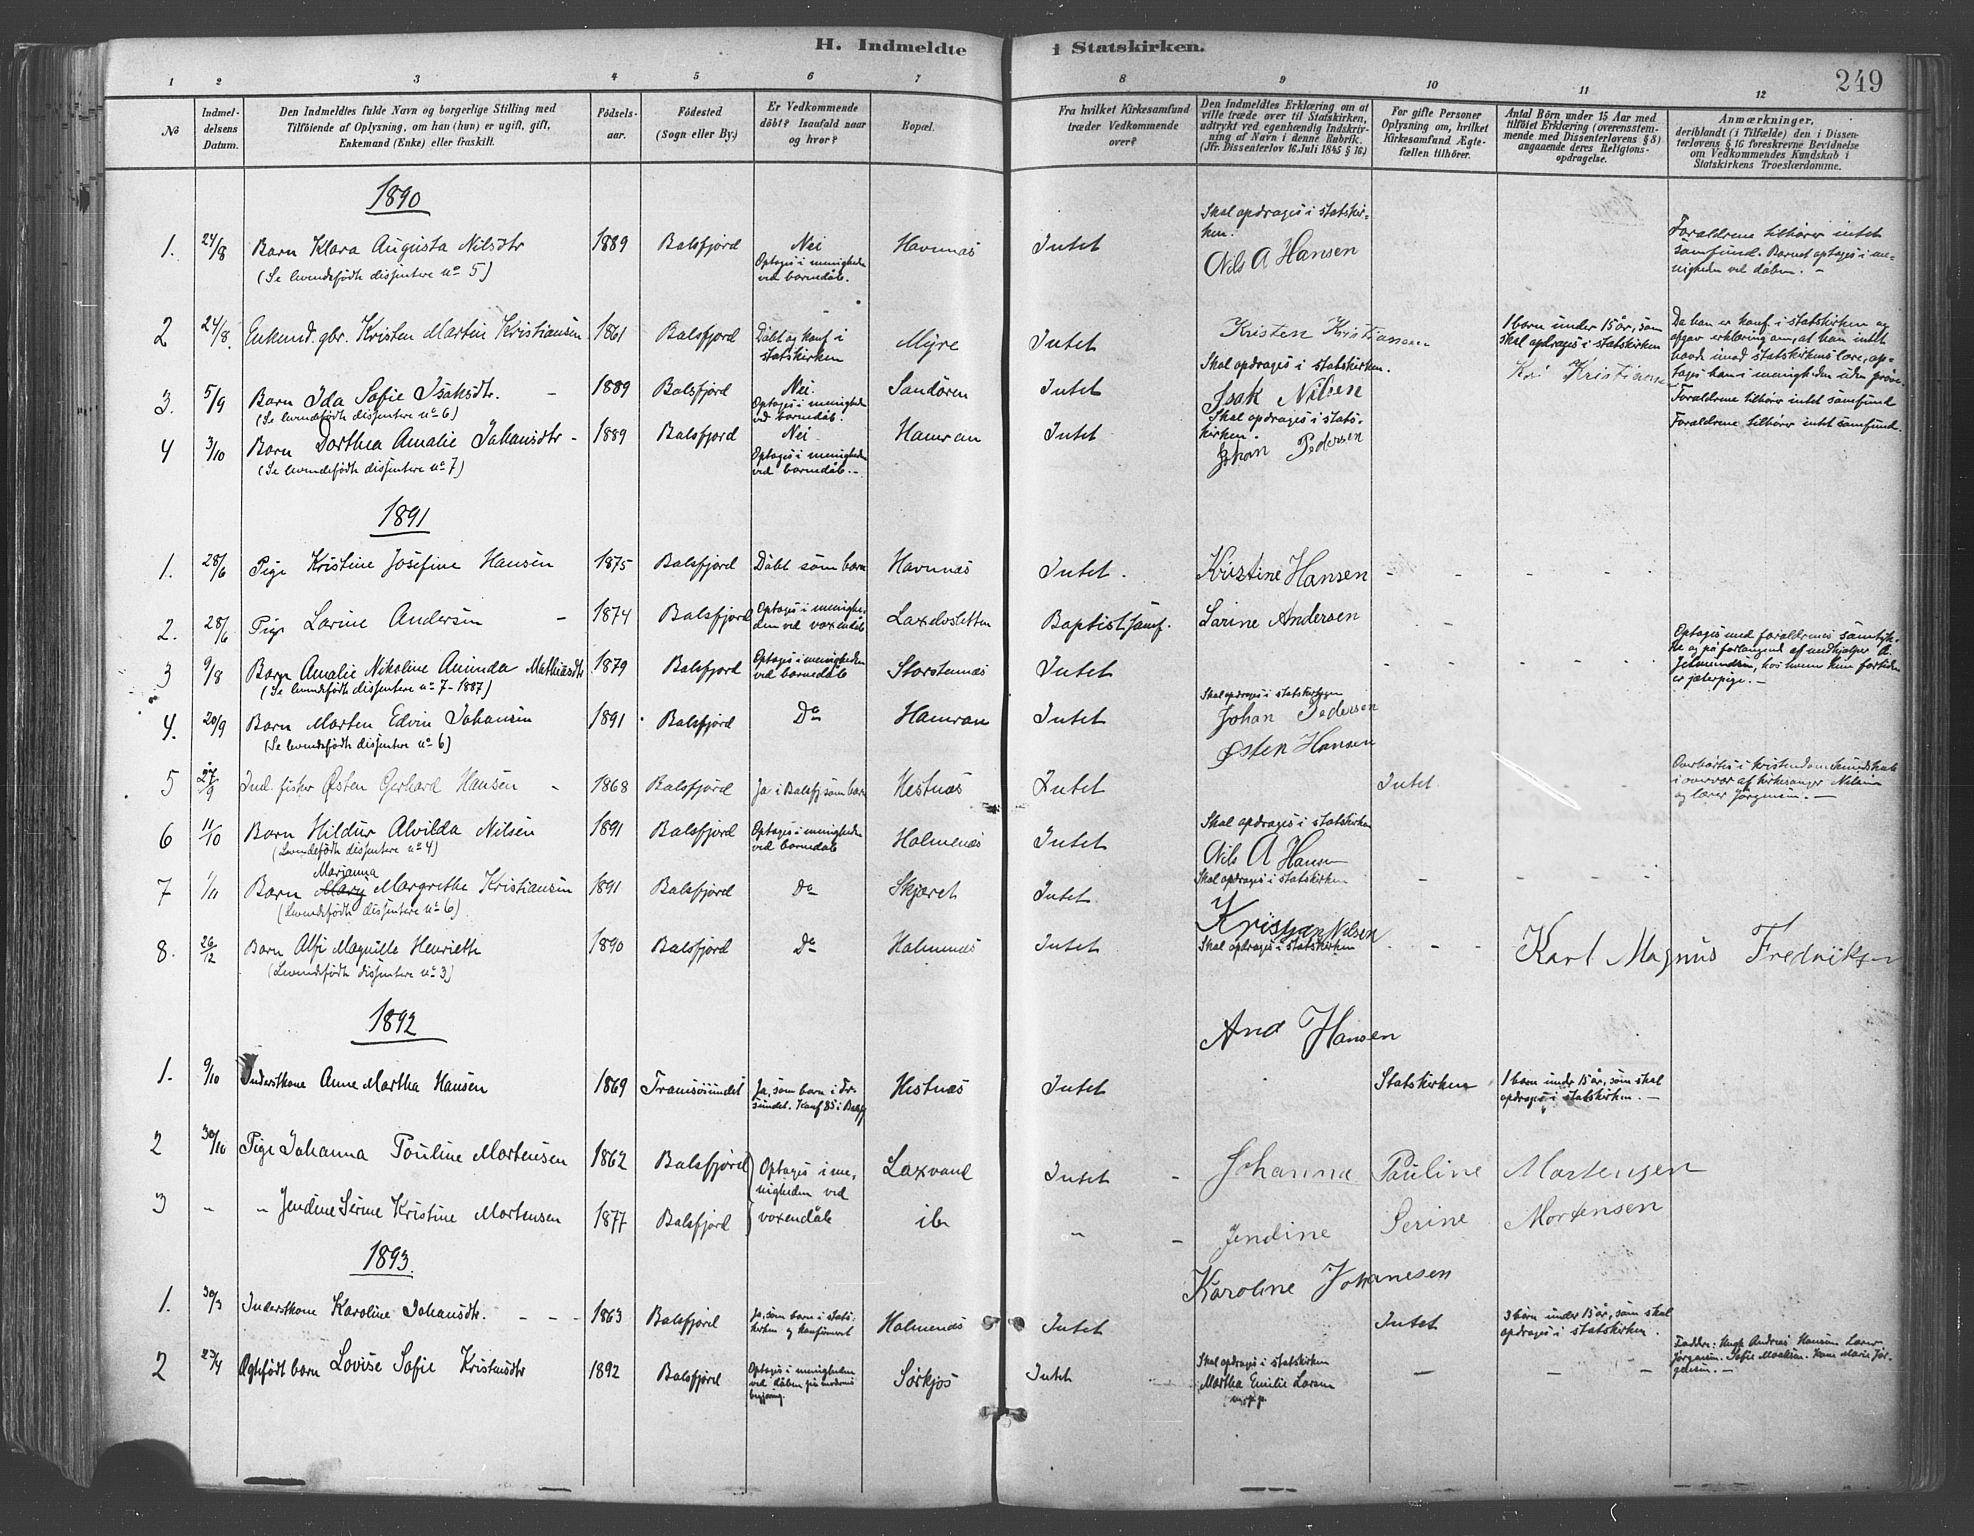 H. Indmeldte i Statskirken.
249
1 2 3 4 5 6 7 8 9 10 11 12
No
Indmeldelsens Datum.
Den Indmeldtes fulde Navn og borgerlige Stilling med
Tilföiende af Oplysning, om han (hun) er ugift, gift,
Enkemand (Enke) eller fraskilt.
Födselsaar.
Födested
(Sogn eller By.)
Er Vedkommende
döbt? Isaafald naar
og hvor?
Bopæl.
Fra hvilket Kirkesamfund
træder Vedkommende
over?
Den Indmeldtes Erklæring om at
ville træde over til Statskirken,
udtrykt ved egenhændig Indskrivning
af Navn i denne Rubrik.
(Jfr. Dissenterlov 16 Juli 1845 § 16.)
For gifte Personer
Oplysning om, hvilket
Kirkesamfund Ægtefællen
tilhörer.
Antal Börn under 15 Aar med
tilföiet Erklæring (overensstemmende
med Dissenterlovens § 8)
angaaende deres Religionsopdragelse.
Anmærkninger,
deriblandt (i Tilfælde) den i Dissenterlovens
§ 16 foreskrevne Bevidnelse
om Vedkommendes Kundskab i
Statskirkens Troeslærdomme.
1890
1. 24/8 Barn Klara Augusta Nilsdtr 1889 Balsfjord Nei Havnnæs Intet
(Se levendefödte dissentere no 5)
Optages i menigheden
ved barnedåb.
Skal opdrages i statskirken.
Nils A Hansen
Forældrene tilhører intet
samfund. Barnet optages i menigheden
ved dåben. -
2 24/8. Enkemd. gbr. Kristen Martin Kristiansen 1861 Balsfjord Döbt og konf. i statskirken Myre Intet
Kristen Kristiansen
1 barn under 15 år, som
skal opdrages i statskirken
Da han er konf. i statskirken og
afgav erklæring om, at han intet
havde imod statskirkens lære, optages
han i menigheden uden prøve.
3. 5/9 Barn Ida Sofie Isaksdtr. - 1889 Balsfjord Nei. Sandören Intet
(Se levendefödte dissentere no 6)
Optages i menigheden
ved barnedåb.
Skal opdrages i statskirken.
Isak Nilsen
Forældrene tilhör intet samfund
4 3/10 Barn Dorthea Amalie Johansdtr - 1889 Balsfjord Nei. Hamran Intet
(Se levendefödte dissentere no 7)
Optages i menigheden
ved barnedåb. -
Skal opdrages i statskirken.
Johan Pedersen
Forældrene tilhörer intet samfund.
1891
1. 28/6 Pige Kristine Josefine Hansen 1875 Balsfjord Döbt som barn Havnnæs Intet. Kristine Hansen
2. 28/6 Pige Larine Andersen - 1874 Balsfjord Optages i menigheden ved voxendåb Laxelvsletten Baptistsamf. Larine Andersen
3 9/8 Barn Amalie Nikoline Aminda Mathiasdtr 1879 Balsfjord Optages i menigheden ved barnedåb Storstennæs Intet
(Se levendefödte dissentere no 7 - 1887)
Optages med forældrenes samtykke
og på forlangende af medhjælper A.
hos hvem hun fortiden
er jæterpige. -
4. 20/9 Barn Morten Edvin Johansen 1891 Balsfjord Do Hamran Intet
(Se levendefödte dissentere no 6)
Skal opdrages i statskirken
Johan Pedersen
Østen Hansen
5 27/9 Ind. fisker Østen Gerhard Hansen - 1868 Balsfjord Ja i Balsfj som barn Hestnæs Intet Intet
i overvær af kirkesanger Nilsen
og lærer Jørgensen. -
6 11/10 Barn Hildur Alvilda Nilsen 1891 Balsfjord Optages i menigheden ved barnedåb Holmenæs Intet
(Levendefödte dissentere no 4)
Skal opdrages i statskirken
Nils A Hansen
7 1/11 Barn Mary Marjanna Margrethe Kristiansen 1891 Balsfjord Do Skjæret Intet
(Levendefödte dissentere no 6)
Skal opdrages i statskirken
Kristian Nilsen
8. 26/12 Barn Alfi Magnille Henriette 1890 Balsfjord Do Holmenæs Intet
(Levendefödte dissentere no 3)
Skal opdrages i statskirken
Karl Magnus Fredriksen
1892
And Hansen
1. 9/10 Inderstkone Anne Martha Hansen 1869 Tromsösundet Ja, som barn i Trsundet. Konf 85 i Balsfj Hestnæs Intet Statskirken
1 barn under 15 år, som skal
opdrages i statskirken. -
2 30/10 Pige Johanna Pouline Mortensen 1862 Balsfjord Optages i menigheden ved voxendåb Laxvand Intet - Johanna Pauline Mortensen
3 " " Jendine Serine Kristine Mortensen 1877 Balsfjord ib " - Jendine Serine Mortensen
1893.
Karoline Johanesen
1. 30/3 Inderstkone Karoline Johansdtr. - - - 1863 Balsfjord Ja, som barn i statskirken og konfirmeret Holmenæs Intet Intet
3 børn under 15 år, som skal
opdrages i statskirken.
2 23/4 Ægtefödt barn Lovise Sofie Kristensdtr 1892 Balsfjord Optages i menigheden ved dåben på moderens begjæring. Sørkjos Intet
Skal opdrages i statskirken
Martha Emilie Larsen
m. p. p.
Faddere: Andreas Hansen. Lærer
Jørgensen. Sofie Kone Marie Jørgensen. -